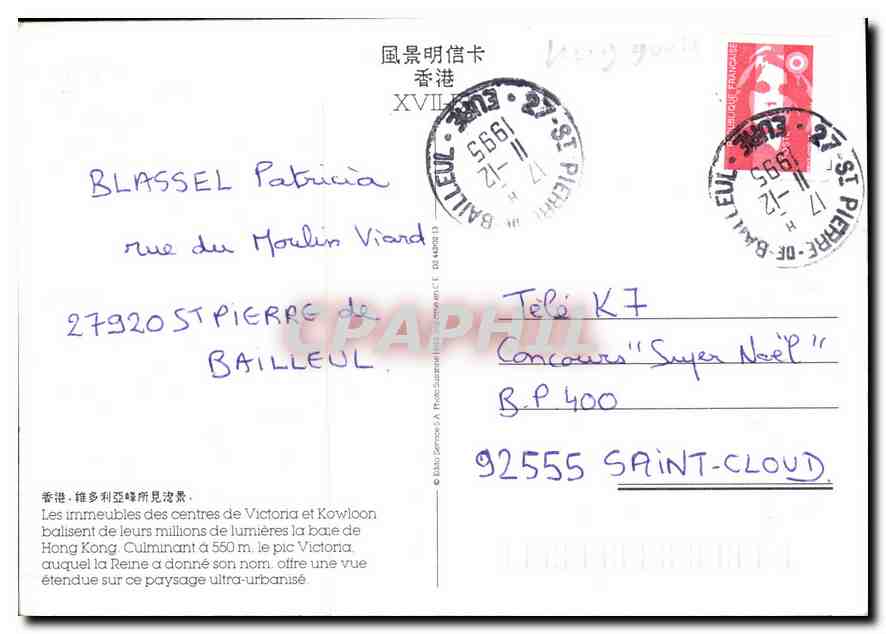 風景明信卡
香港
BLASSEL Patricia
rue du Moulin Viard
27920 ST PIERRE de
BAILLEUL.
香港，維多利亞峰所見海景．
Les immeubles des centres de Victoria et Kowloon
balisent de leurs millions de lumières la baie de
Hong Kong. Culminant à 550 m, le pic Victoria,
auquel la Reine a donné son nom, offre une vue
étendue sur ce paysage ultra-urbanisé.
CPAPHIL
REPUBLIQUE FRANÇAISE
27-ST PIERRE-DE-BAILLEUL • EURE •
17 H
11-12
1995
27-ST PIERRE-DE-BAILLEUL • EURE •
17 H
11-12
1995
Télé K7
Concours "Super Noël"
B.P 400
92555 SAINT-CLOUD.